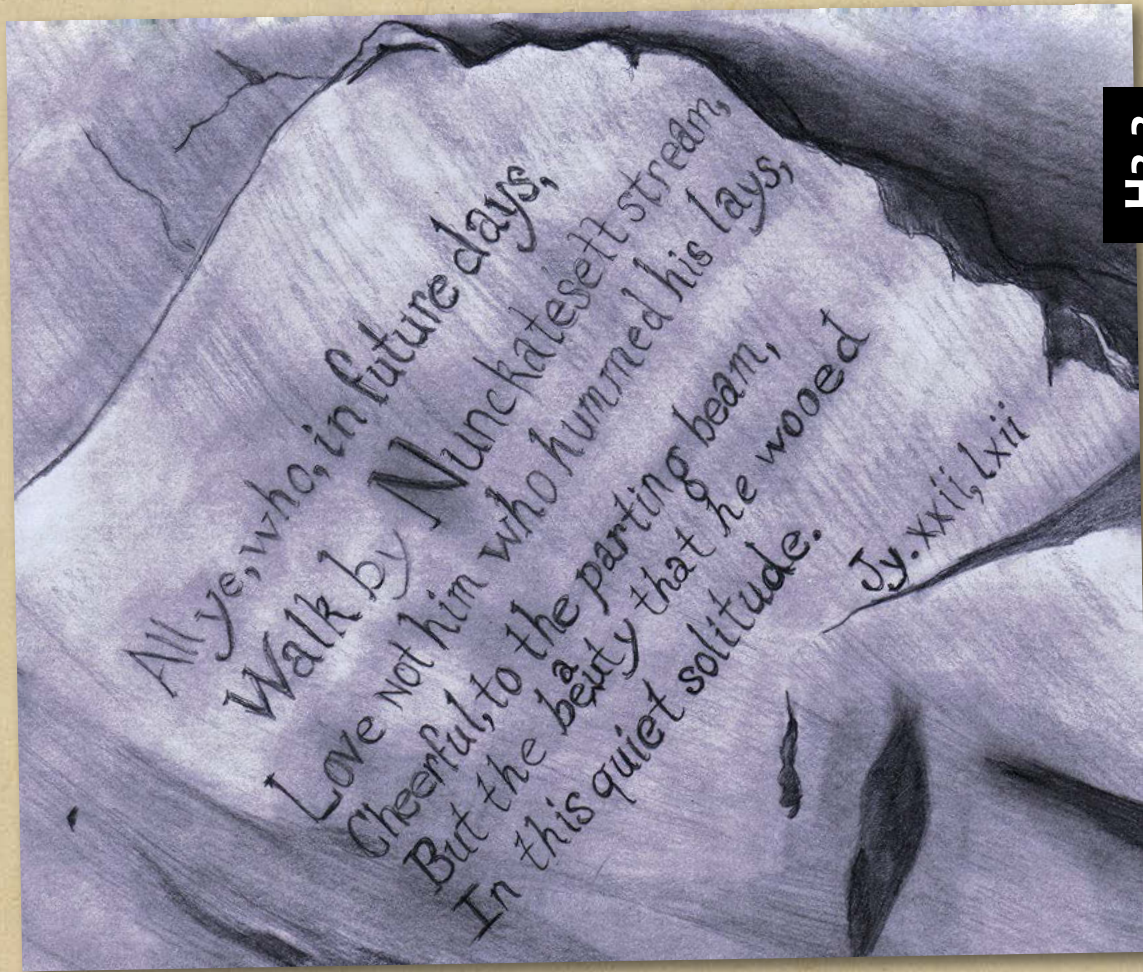 All ye, who, in future days,
Walk by Nunckatesett stream,
Love not him who hummed his lays,
Cheerful, to the parting beam,
But the beauty that he wooed
In this quiet solitude.
Jy. xxii, lxii